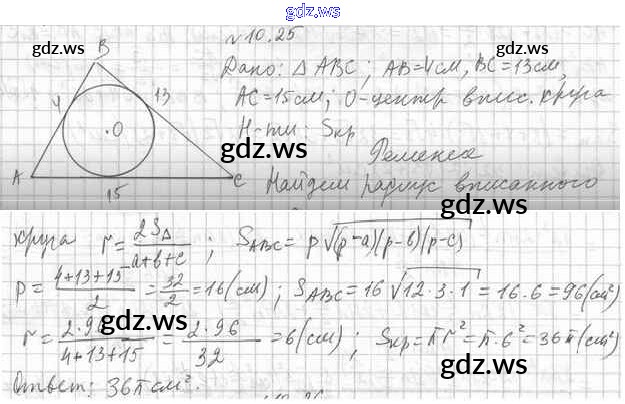 gdz.ws
№10.25
Дано: Δ ABC; AB=4см, BC=13см,
AC=15см; O-центр впис. круга
Н-ти: Sкр
Найдем радиус вписанного
B
4
13
O
A
15
C
круга r = 2SΔ / a+b+c ; SABC = p√(p-a)(p-b)(p-c)
p = 4+13+15 / 2 = 32 / 2 = 16(см) ; SABC = 16√12·3·1 = 16·6 = 96(см²)
r = 2·96 / 4+13+15 = 2·96 / 32 = 6(см) ; Sкр = πr² = π·6² = 36π(см²)
Ответ: 36π см².
gdz.ws
gdz.ws
gdz.ws
gdz.ws
gdz.ws
gdz.ws